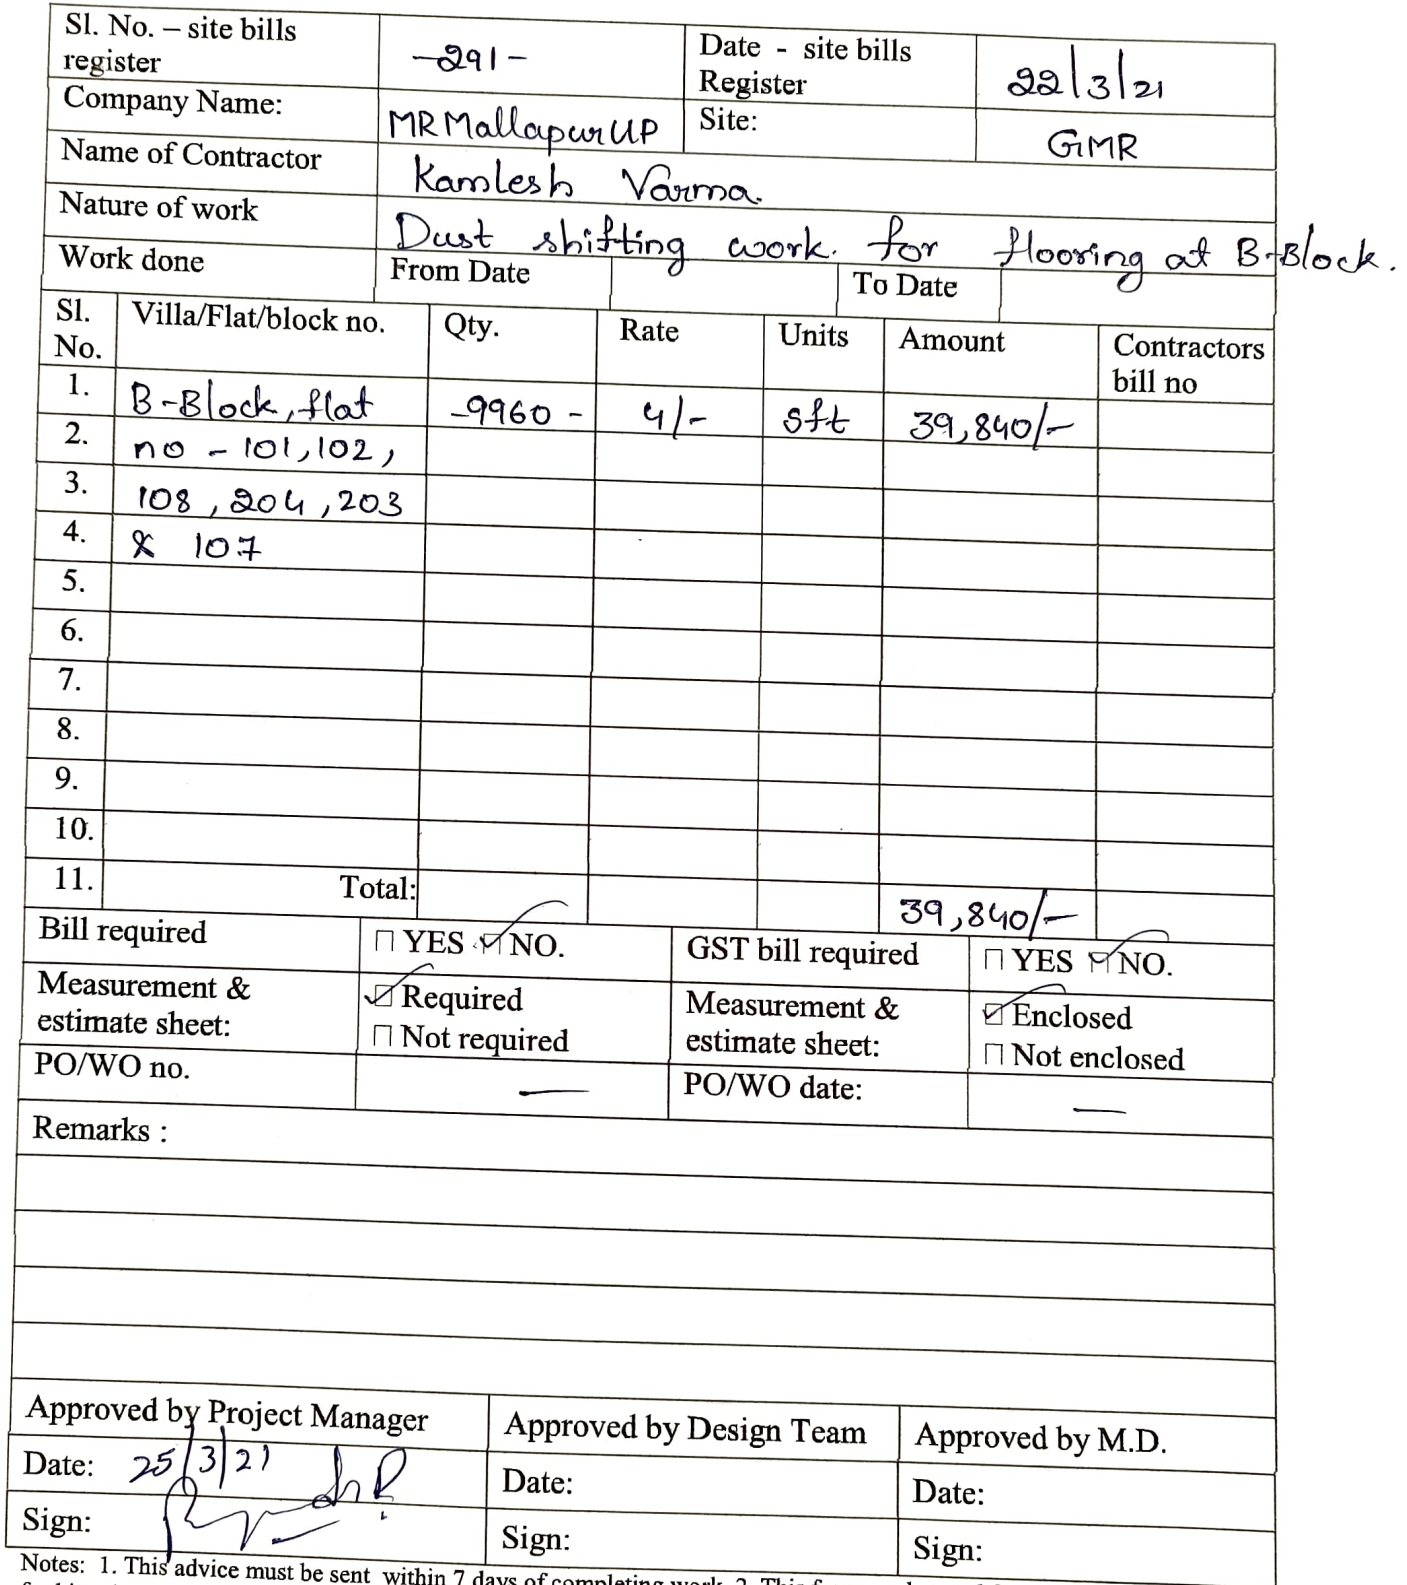 Sl. No. – site bills register -291- Date - site bills Register 22/3/21
Company Name: MR Mallapur UP Site: GMR
Name of Contractor Kamlesh Varma.
Nature of work Dust shifting work. for flooring at B-Block.
Work done From Date To Date
Sl. No. Villa/Flat/block no. Qty. Rate Units Amount Contractors bill no
1. B-Block, flat -9960- 4/- sft 39,840/-
2. no - 101, 102,
3. 108, 204, 203
4. & 107
5.
6.
7.
8.
9.
10.
11. Total: 39,840/-
Bill required YES NO. GST bill required YES NO.
Measurement & estimate sheet: Required Not required Measurement & estimate sheet: Enclosed Not enclosed
PO/WO no. — PO/WO date: —
Remarks :
Approved by Project Manager Approved by Design Team Approved by M.D.
Date: 25/3/21 Date: Date:
Sign: Sign: Sign:
Notes: 1. This advice must be sent within 7 days of completing work. 2. This